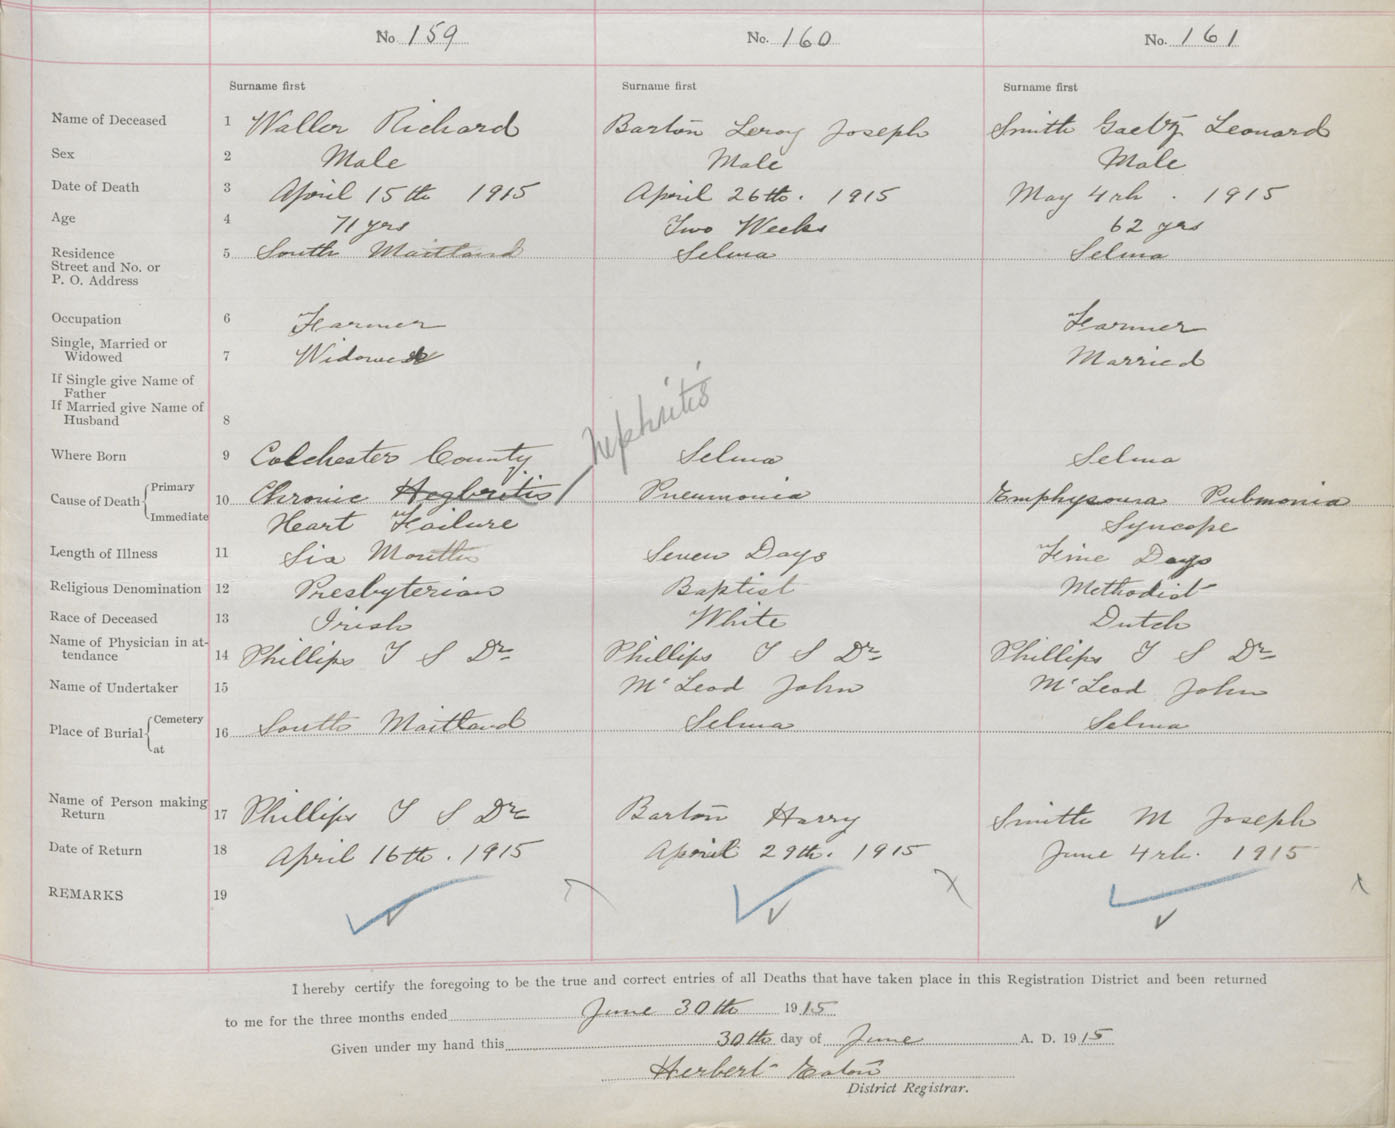 No 159 No. 160 No. 161
Surname first Surname first Surname first
Name of Deceased 1 Waller Richard Barton Leroy Joseph Smith Gaetz Leonard
Sex 2 Male Male Male
Date of Death 3 April 15th 1915 April 26th. 1915 May 4rh. 1915
Age 4 71 yrs Two Weeks 62 yrs
Residence 5 South Maitland Selma Selma
Street and No. or
P. O. Address
Occupation 6 Farmer Farmer
Single, Married or
Widowed 7 Widowed Married
If Single give Name of
Father
If Married give Name of
Husband 8
nephritis
Where Born 9 Colchester County Selma Selma
Cause of Death Primary 10 Chronic Hegbritis Pneumonia Emphysoura Pubmonia
Immediate Heart Failure Syncope
Length of Illness 11 Six Months Seven Days Fine Days
Religious Denomination 12 Presbyterian Baptist Methodist
Race of Deceased 13 Irish White Dutch
Name of Physician in at-
tendance 14 Phillips T S Dr Phillips T S Dr Phillips T S Dr
Name of Undertaker 15 McLeod John McLeod John
Place of Burial Cemetery 16 South Maitland Selma Selma
at
Name of Person making
Return 17 Phillips T S Dr Barton Harry Smith M Joseph
Date of Return 18 April 16th. 1915 April 29th. 1915 June 4rh. 1915
REMARKS 19
I hereby certify the foregoing to be the true and correct entries of all Deaths that have taken place in this Registration District and been returned
to me for the three months ended June 30th 1915
Given under my hand this 30th day of June A. D. 1915
Herbert Eaton
District Registrar.